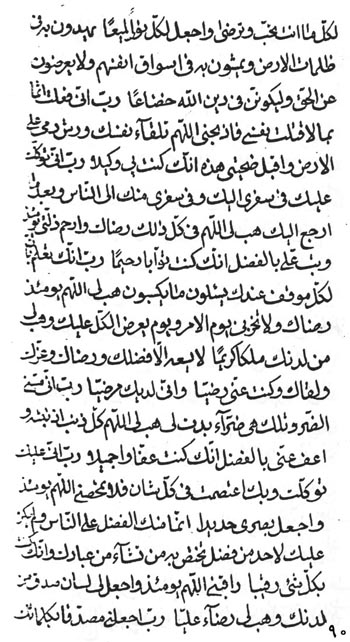 لكلّ ما انت تحبّ وترضى واجعل لكلّ نورًا لميعًا يهيدون به فى
ظلمات الارض ويمشون به فى اسواق انفسهم ولا يعرضون
عن الحقّ وليكوننّ فى دين الله خضاعًا ربّ انّى فعلت
بما لا فعلت بنفسى فاذبحنى اللهمّ تلقاء نفسك ورشّ دمى على
الارض واقبل ضحيتى هذه انّك كنت بى وكيلا وربّ انّى توكّلت
عليك فى سفرى اليك وفى سفرى منك الى الناس وبعد
ارجع اليك هب لى اللهمّ فى كلّ ذلك رضاك وارحم ذلّتى
وتب علىّ بالفضل انّك كنت توّابا رحيما ربّ انّك تعلم
لكلّ موقف عندك يسئلون ما يكسبون هب لى اللهمّ يومئذ
رضاك ولا تخزنى يوم الامر ويوم يعرض الكلّ عليك وهب لى
من لدنك ملكا كريمًا لا يسعه الّا فضلك ورضاك وعزّك
ولقاك وكنت عنّى رضيّا وانّى لديك مرضيّا ربّ انّى مسّنى
الضرّ وتلك هى ضرّاء بدت لى هب لى اللهمّ كلّ ذنب اذنبته و
اعف عنّى بالفضل انّك كنت عفّوا جميلا ربّ انّى عليك
توكّلت وبك اعتصمت فى كلّ شان فلا تخصنى اللهمّ يومئذ
واجعل بصرى حديدا انّما منك الفضل على الناس ولم يكن
عليك لاحد من فضل تختصّ به من تشاء من عبادك وانّك كنت
بكلّ شئ رقيبا راقبنى اللهمّ يومئذ واجعل لى لسان صدق من
لدنك وهب لى رضاء عليّا ربّ اجعلنى مصدّقا بكلماتك
٩٠